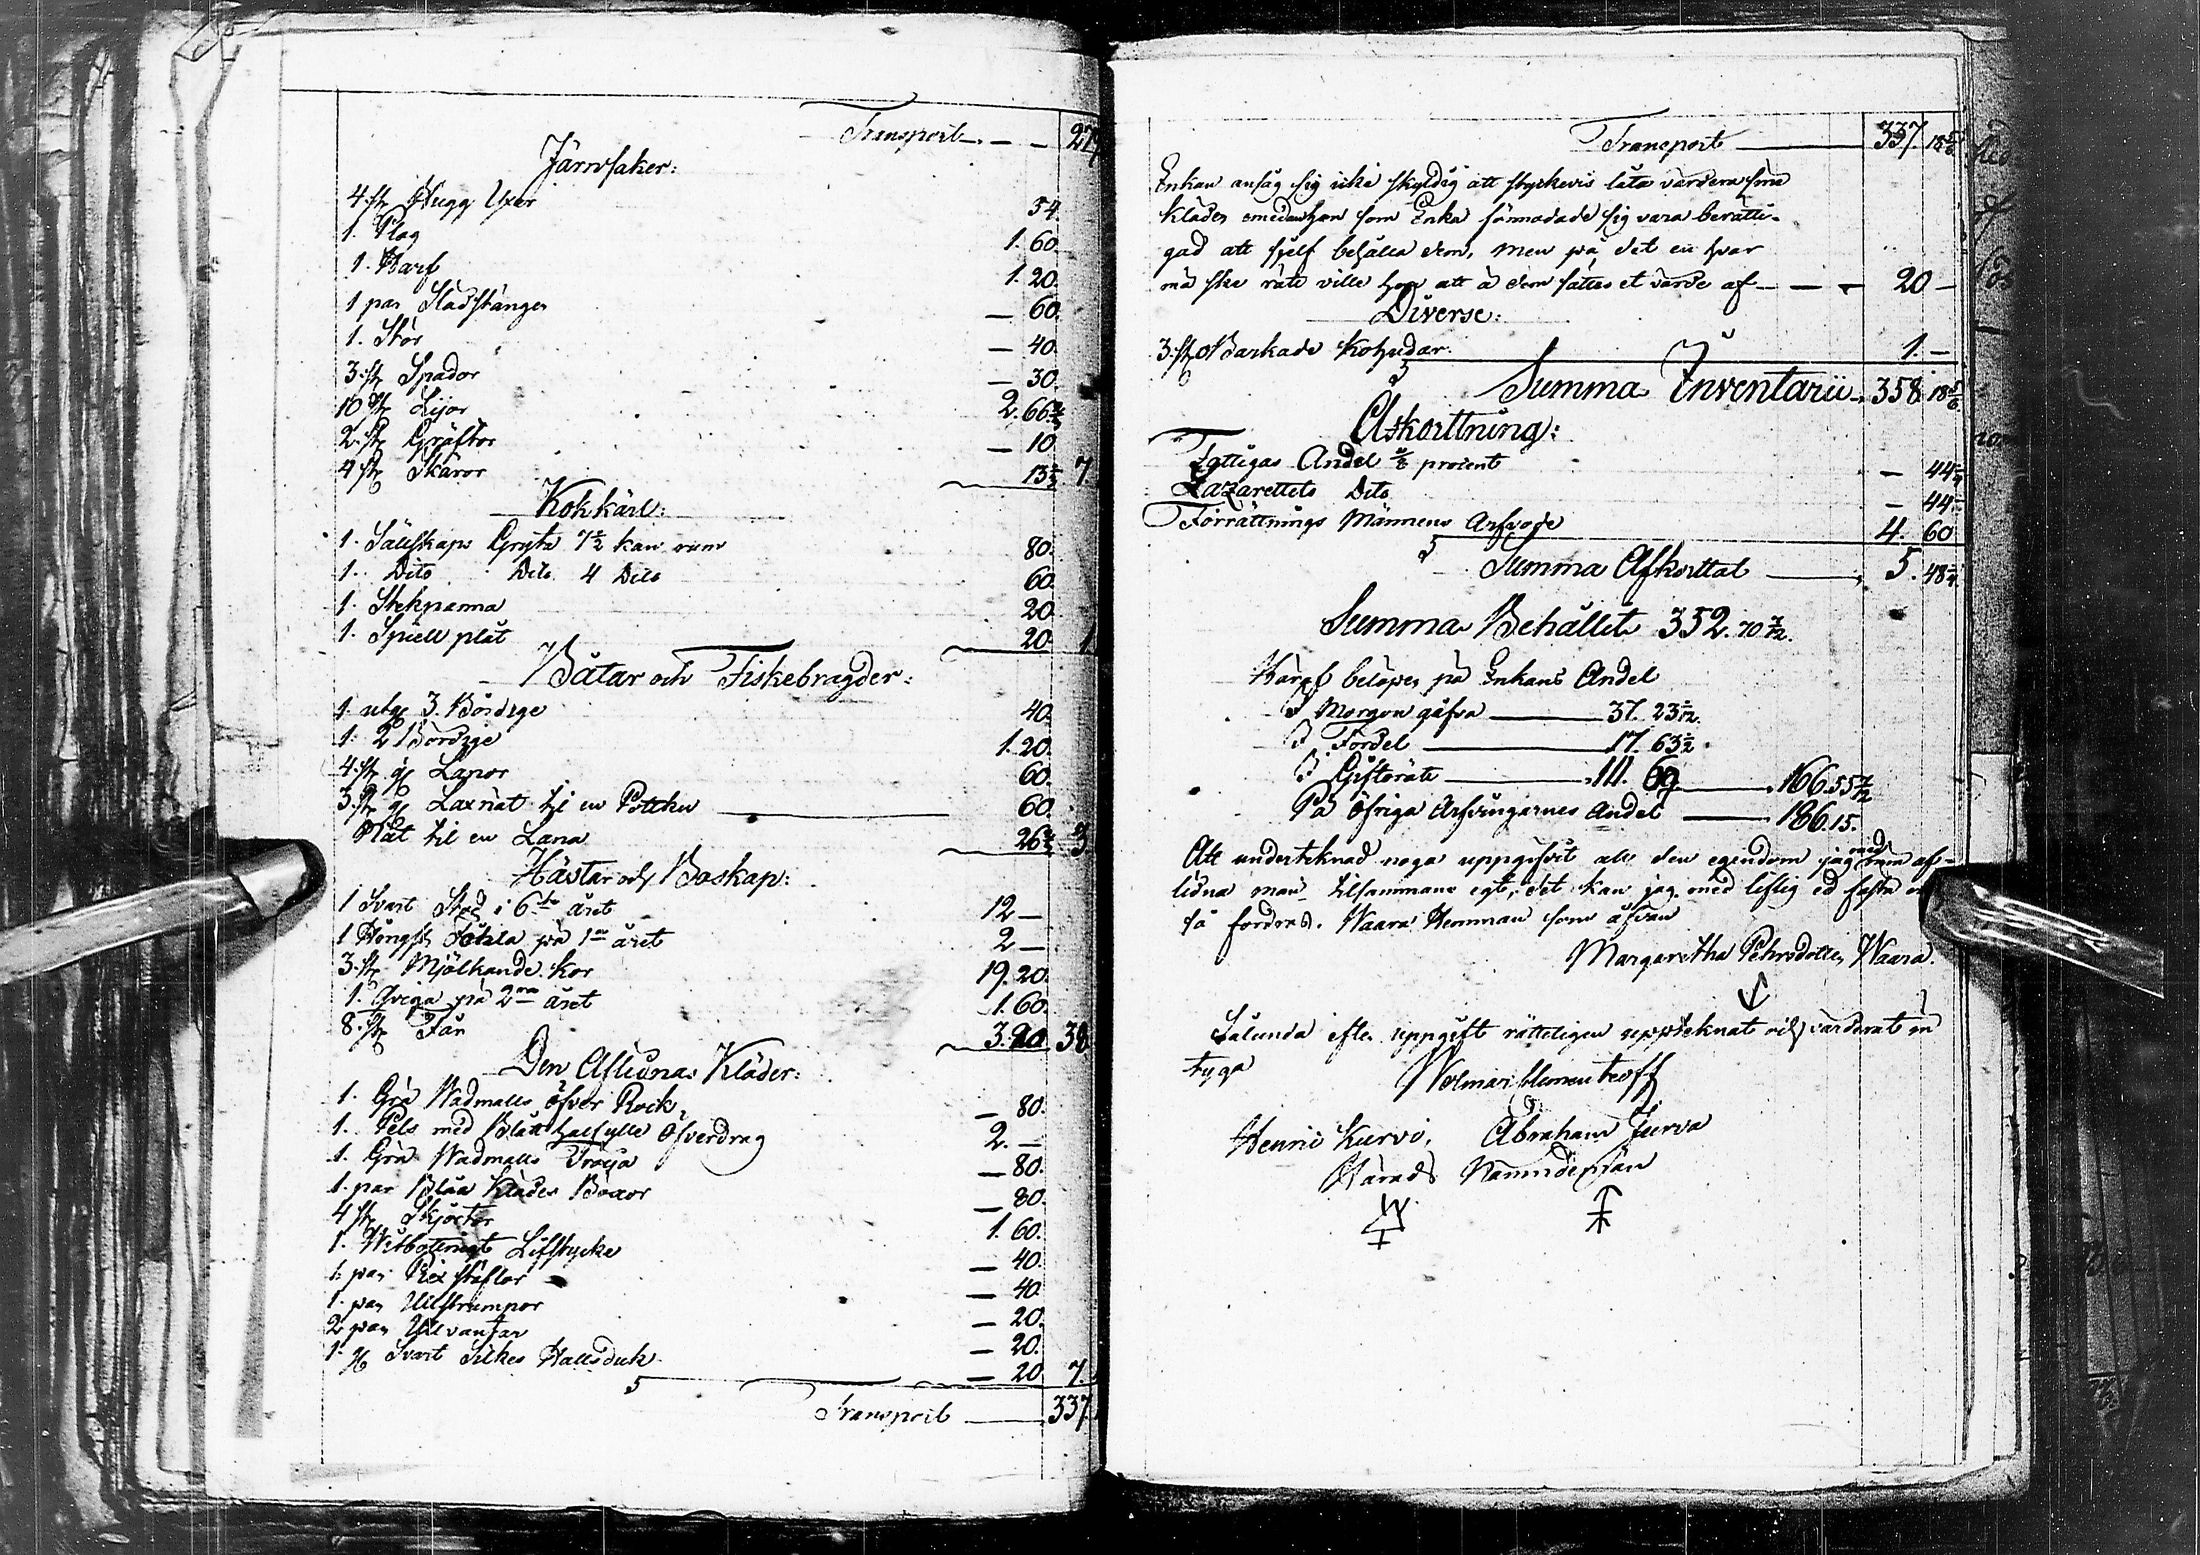 Transport — — 27
Järnsaker:
4 st Hugg Yxor 54.
1. Plog 1. 60.
1. Harf 1. 20.
1 par Slädstänger — 60.
1. Stör — 40.
3 st Spador — 30.
10 st Lijor 2. 66 2/3
2 st Gräftor — 10
4 st Skäror 13 1/3 7
Kokkärl:
1. Sällskaps Gryta 7 1/2 kan rum 80.
1. Dito Dito 4 Dito 60.
1. Stekpanna 20.
1. Spiell plåt 20. 1
Båtar och Fiskebragder:
1. utg 3. Bördige 40.
1. 2 Bördige 1. 20.
4. st Lanor 60.
3. st Laxnät til en Pottku 60.
Nät til en Lana 26 2/3 3
Hästar och Boskap:
1 Svart Sto i 6te året 12 —
1 Hingst Fohla på 1ra året 2 —
3. st Mjölkande Kor 19. 20.
1. Qviga på 2ra året 1. 60.
8. st Får 3. 20. 38
Den Aflidnas Kläder:
1. Grå Wadmalls öfver Rock — 80.
1. Pels med Blått halfylle Öfverdrag 2. —
1. Grå Wadmalls Tröja — 80.
1. par Blåa Klädes Böxor — 80.
4 st Skjortor 1. 60.
1. Lifstycke — 40.
1. par stöflor — 40
1. par Ullstrumpor — 20.
2 par Ullvantar — 20.
1. Svart Silkes Hallsduk — 20 7.
Transport — 337
Transport — 337 18 5/6
Enkan ansåg sig icke skyldig att styckevis låta värdera sina
kläder emedan hon som Enka förmodade sig vara berätti-
gad att sjelf behålla dem, men på det en hvar
må ske rätt ville hon att å dem sättes et värde af — — — 20 —
Diverse:
3. st Barkade Kohudar. 1. —
Summa Inventarii — 358 18 5/6
Afkorttning:
Fattigas Andel 1/8 procent — 44
Lazarettets Dito — 44
Förrättnings Männens Arfvode 4. 60
Summa Afkorttat — 5. 48
Summa Behållet 352. 70 7/12.
Häraf belöper på Enkans Andel
I Morgongåfva — 37. 23 1/12.
I Fördel — 17. 63 1/2.
I Giftorätt — 111. 69 — 166. 55 7/12
På öfriga Arfvingarnes andel — 186. 15.
Att undertecknad noga uppgifvit all den egendom jag med min af-
lidna man tilsammans egt, det kan jag med liflig ed fästa om
så fordras. Waara Hemman som åfvan
Margaretha Pehrsdotter Waara.
Sålunda efter uppgift rätteligen uppteknat och värderat in
tyga
Wolmar Clementeoff
Henric Kurvi, Abraham Jurva
Härads Nämndemän